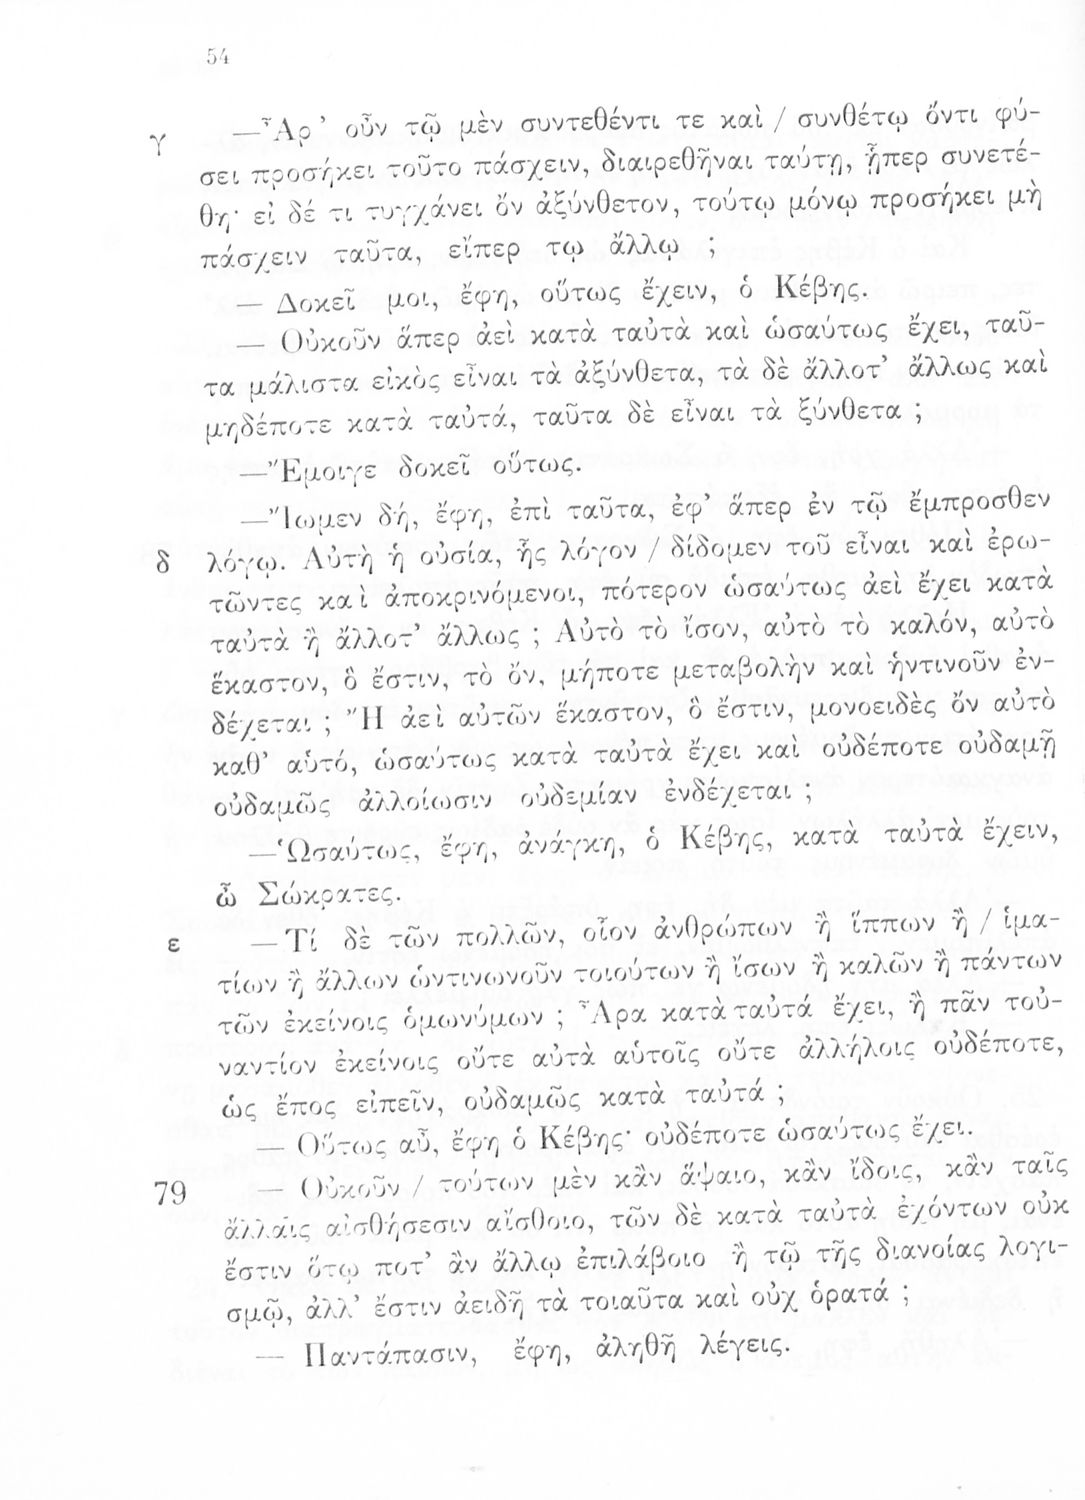 54
γ —Ἆρ’ οὖν τῷ μὲν συντεθέντι τε καὶ / συνθέτῳ ὄντι φύ-
σει προσήκει τοῦτο πάσχειν, διαιρεθῆναι ταύτῃ, ᾗπερ συνετέ-
θη· εἰ δέ τι τυγχάνει ὂν ἀξύνθετον, τούτῳ μόνῳ προσήκει μὴ
πάσχειν ταῦτα, εἴπερ τῳ ἄλλῳ ;
— Δοκεῖ μοι, ἔφη, οὕτως ἔχειν, ὁ Κέβης.
— Οὐκοῦν ἅπερ ἀεὶ κατὰ ταὐτὰ καὶ ὡσαύτως ἔχει, ταῦ-
τα μάλιστα εἰκὸς εἶναι τὰ ἀξύνθετα, τὰ δὲ ἄλλοτ’ ἄλλως καὶ
μηδέποτε κατὰ ταὐτά, ταῦτα δὲ εἶναι τὰ ξύνθετα ;
—Ἔμοιγε δοκεῖ οὕτως.
—Ἴωμεν δή, ἔφη, ἐπὶ ταῦτα, ἐφ’ ἅπερ ἐν τῷ ἔμπροσθεν
δ λόγῳ. Αὐτὴ ἡ οὐσία, ἧς λόγον / δίδομεν τοῦ εἶναι καὶ ἐρω-
τῶντες καὶ ἀποκρινόμενοι, πότερον ὡσαύτως ἀεὶ ἔχει κατὰ
ταὐτὰ ἢ ἄλλοτ’ ἄλλως ; Αὐτὸ τὸ ἴσον, αὐτὸ τὸ καλόν, αὐτὸ
ἕκαστον, ὃ ἔστιν, τὸ ὄν, μήποτε μεταβολὴν καὶ ἡντινοῦν ἐν-
δέχεται ; Ἢ ἀεὶ αὐτῶν ἕκαστον, ὃ ἔστιν, μονοειδὲς ὂν αὐτὸ
καθ’ αὑτό, ὡσαύτως κατὰ ταὐτὰ ἔχει καὶ οὐδέποτε οὐδαμῇ
οὐδαμῶς ἀλλοίωσιν οὐδεμίαν ἐνδέχεται ;
—Ὡσαύτως, ἔφη, ἀνάγκη, ὁ Κέβης, κατὰ ταὐτὰ ἔχειν,
ὦ Σώκρατες.
ε — Τί δὲ τῶν πολλῶν, οἷον ἀνθρώπων ἢ ἵππων ἢ / ἱμα-
τίων ἢ ἄλλων ὡντινωνοῦν τοιούτων ἢ ἴσων ἢ καλῶν ἢ πάντων
τῶν ἐκείνοις ὁμωνύμων ; Ἆρα κατὰ ταὐτά ἔχει, ἢ πᾶν τοὐ-
ναντίον ἐκείνοις οὔτε αὐτὰ αὑτοῖς οὔτε ἀλλήλοις οὐδέποτε,
ὡς ἔπος εἰπεῖν, οὐδαμῶς κατὰ ταὐτά ;
— Οὕτως αὖ, ἔφη ὁ Κέβης· οὐδέποτε ὡσαύτως ἔχει.
79 — Οὐκοῦν / τούτων μὲν κἂν ἅψαιο, κἂν ἴδοις, κἂν ταῖς
ἄλλαις αἰσθήσεσιν αἴσθοιο, τῶν δὲ κατὰ ταὐτὰ ἐχόντων οὐκ
ἔστιν ὅτῳ ποτ’ ἂν ἄλλῳ ἐπιλάβοιο ἢ τῷ τῆς διανοίας λογι-
σμῷ, ἀλλ’ ἔστιν ἀειδῆ τὰ τοιαῦτα καὶ οὐχ ὁρατά ;
— Παντάπασιν, ἔφη, ἀληθῆ λέγεις.